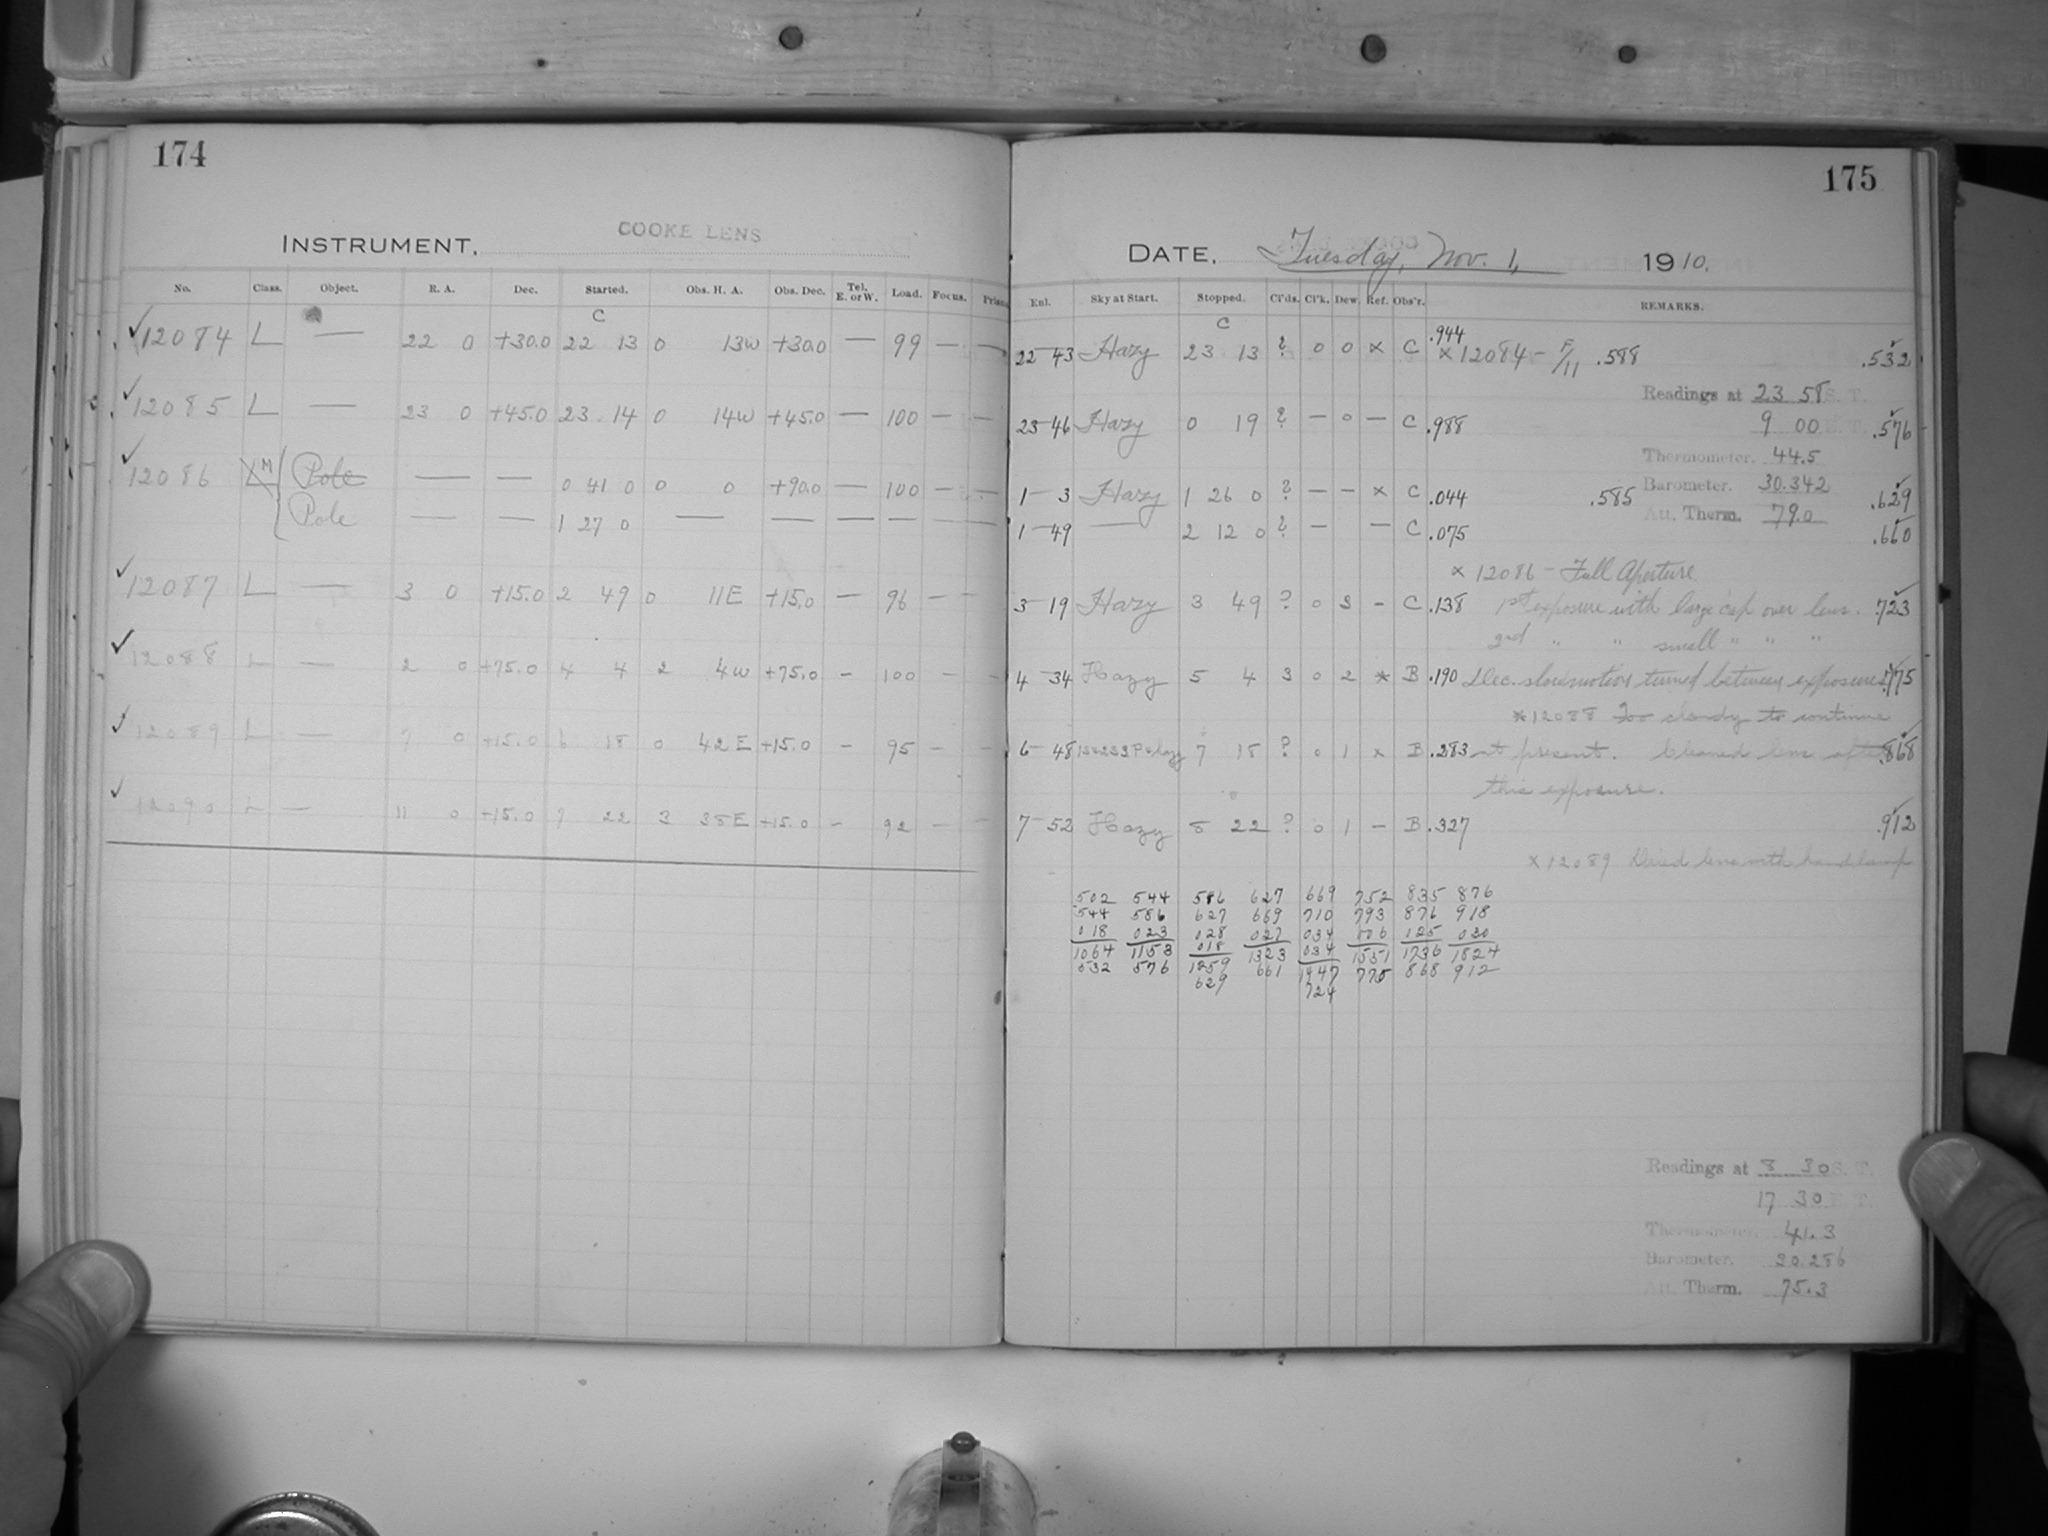 174
INSTRUMENT, COOKE LENS
No. Class. Object. R. A. Dec. Started. Obs. H. A. Obs. Dec. Tel. E. or W. Load. Focus. Prism
C
12084 L — 22 0 +30.0 22 13 0 13W +30.0 — 99 — —
12085 L — 23 0 +45.0 23 14 0 14W +45.0 — 100 — —
12086 L M Pole — — 0 41 0 0 0 +90.0 — 100 — —
Pole — — 1 27 0 — — — — — —
12087 L — 3 0 +15.0 2 49 0 11E +15.0 — 96 — —
12088 L — 2 0 +75.0 4 4 2 4W +75.0 — 100 — —
12089 L — 7 0 +15.0 6 18 0 42E +15.0 — 95 — —
12090 L — 11 0 +15.0 7 22 3 38E +15.0 — 92 — —
175
DATE, Tuesday, Nov. 1, 1910.
Enl. Sky at Start. Stopped. Cl'ds. Cl'k. Dew. Ref. Obs'r. REMARKS.
C
22-43 Hazy 23 13 ? 0 0 x C .944 x 12084 - F/11 .588 .532
Readings at 23 58 S. T.
23-46 Hazy 0 19 ? — 0 — C .988 9 00 .576
Thermometer. 44.5
Barometer. 30.342
1-3 Hazy 1 26 0 ? — — x C .044 .585 .629
Att. Therm. 79.0
1-49 — 2 12 0 ? — — C .075 .660
x 12086 - Full Aperture
3-19 Hazy 3 49 ? 0 3 - C .138 1st exposure with large cap over lens. .723
2nd " " small " " "
4-34 Hazy 5 4 3 0 2 * B .190 Dec. slow motion turned between exposures .775
*12088 Too cloudy to continue
6-48 7 18 ? 0 1 x B .283 at present. Cleaned lens after .868
this exposure.
7-52 Hazy 8 22 ? 0 1 - B .327 .912
x 12089 Dried lens with hand lamp
502 544 586 627 669 752 835 876
544 586 627 669 710 793 876 918
018 023 028 027 034 006 025 030
1064 1153 018 1323 034 1551 1736 1824
532 576 1259 661 1447 775 868 912
629 724
Readings at 8 30 S. T.
17 30
Thermometer. 41.3
Barometer. 30.286
Att. Therm. 75.3